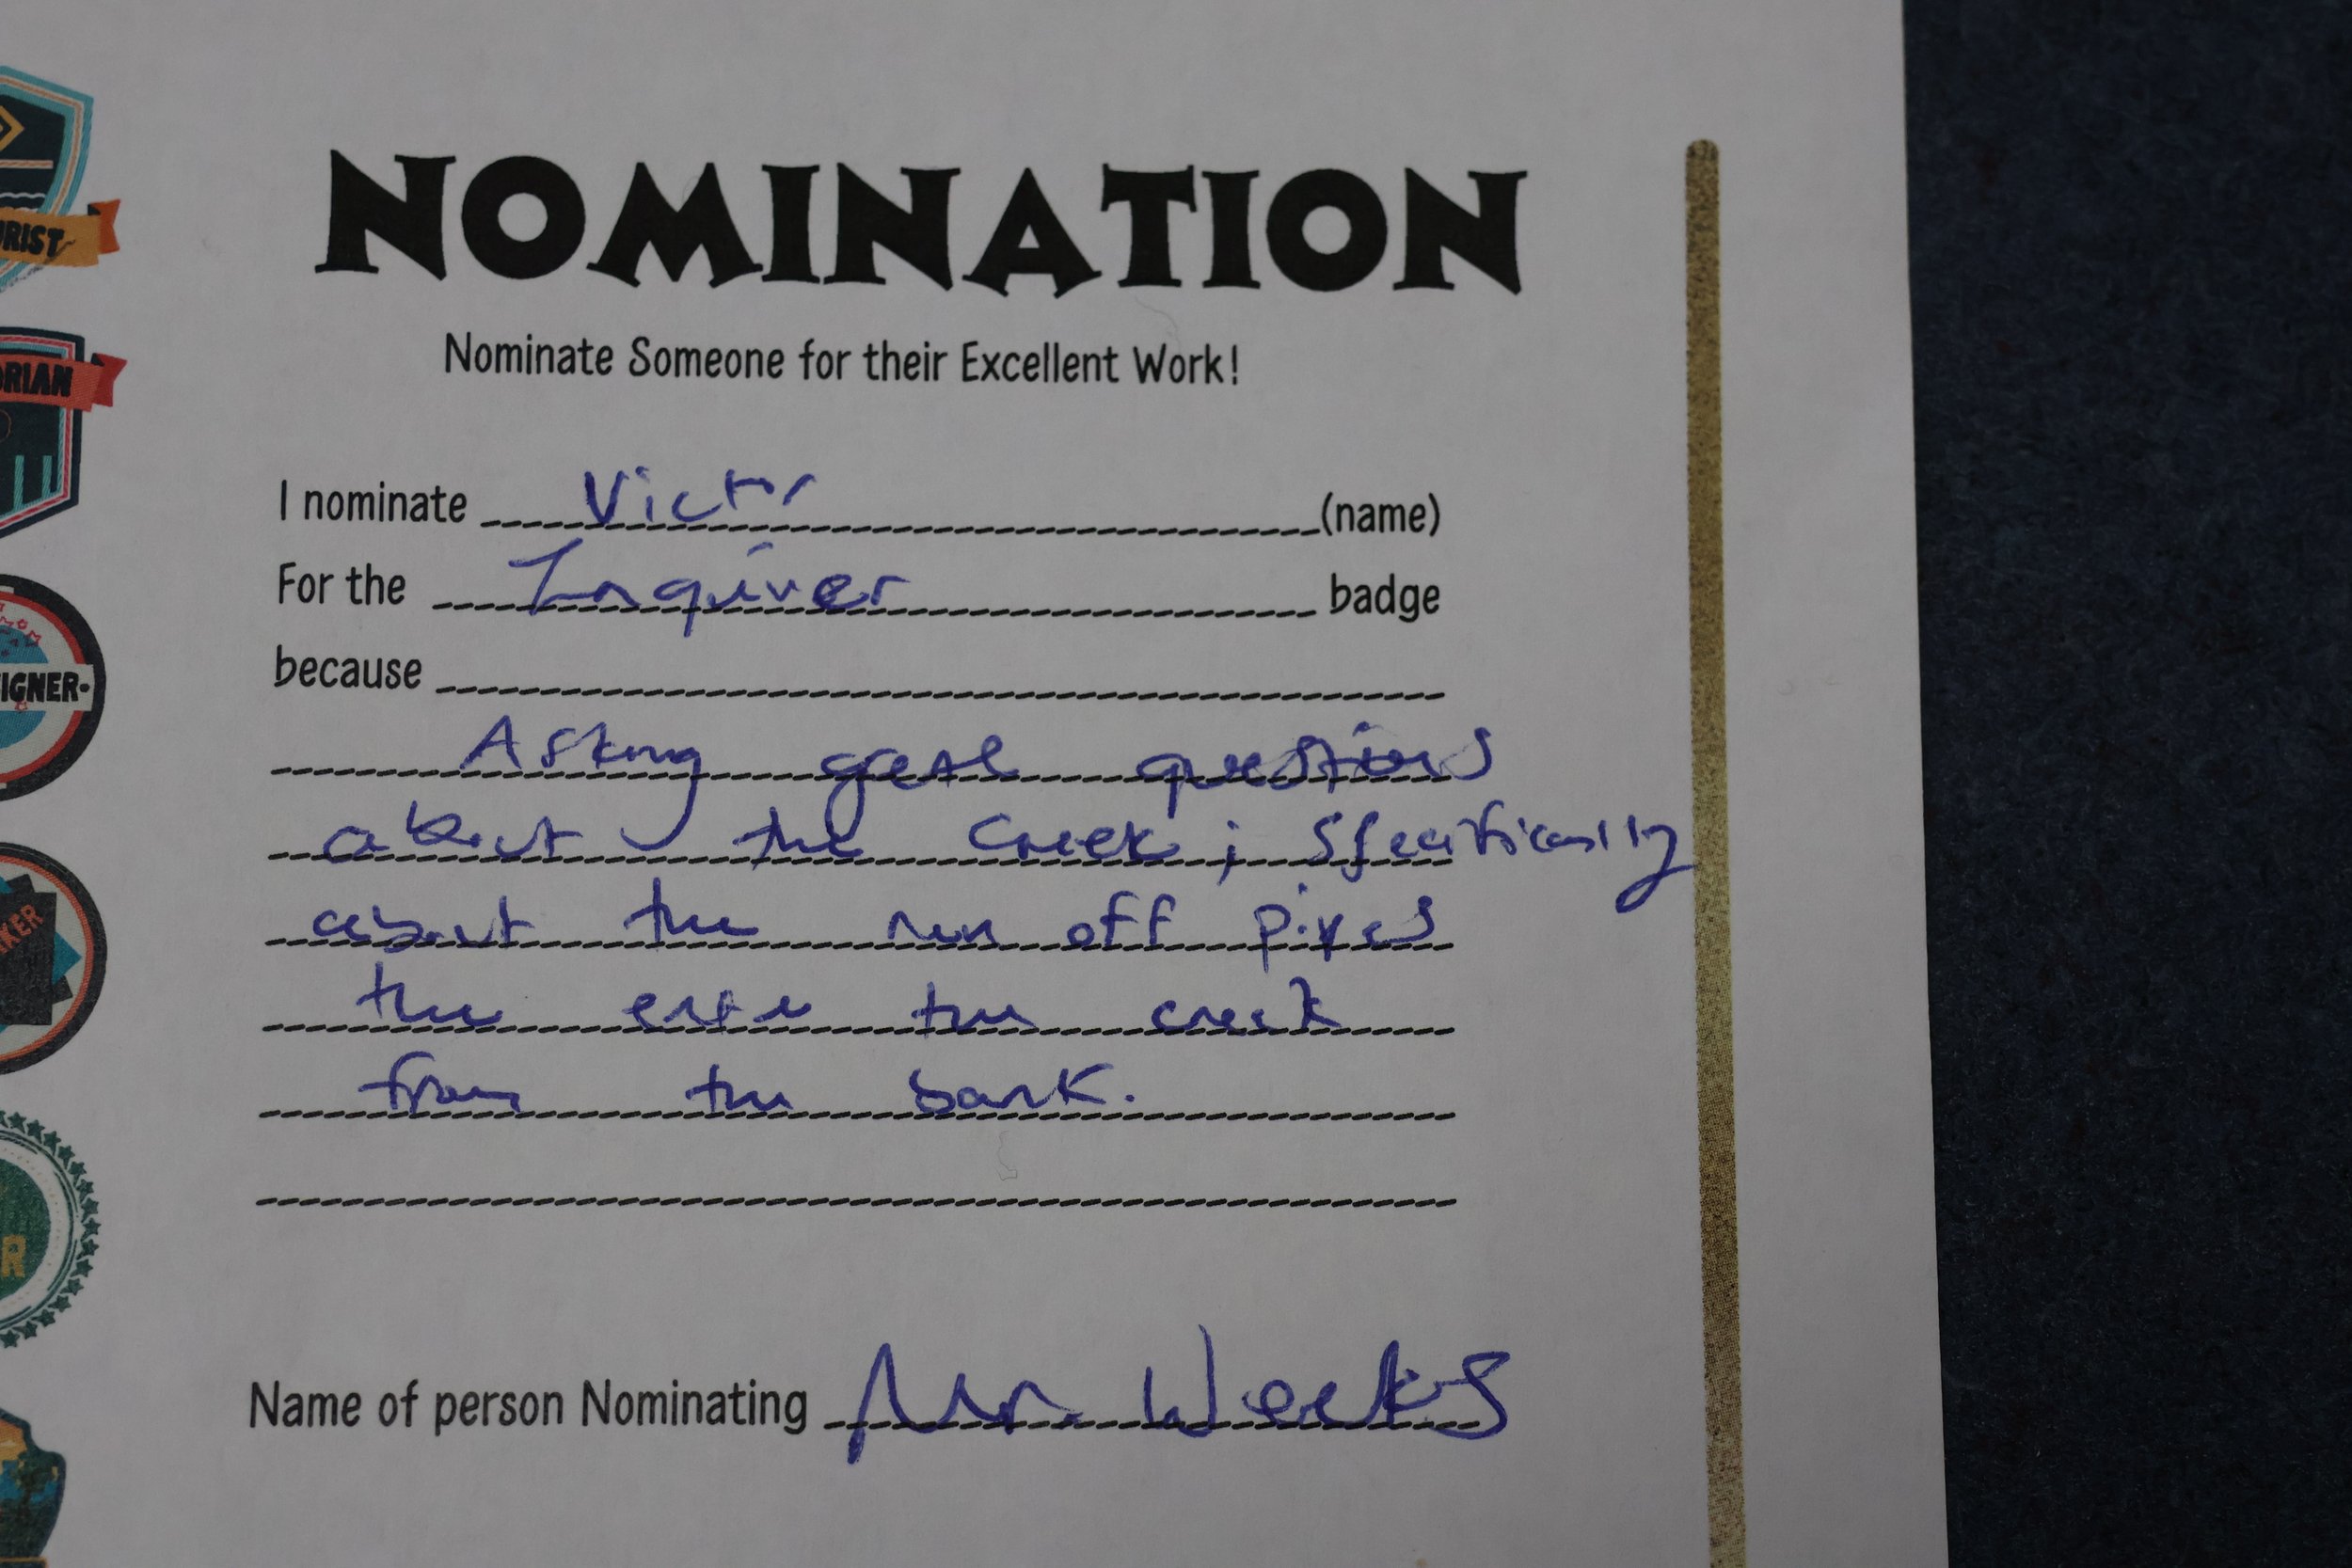 NOMINATION
Nominate Someone for their Excellent Work!
I nominate Victor (name)
For the Inquirer badge
because
Asking great questions
about the creek; specifically
about the run off pipes
the enter the creek
from the bank.
Name of person Nominating Mr. Weeks
RIST
RIAN
IGNER
KER
R